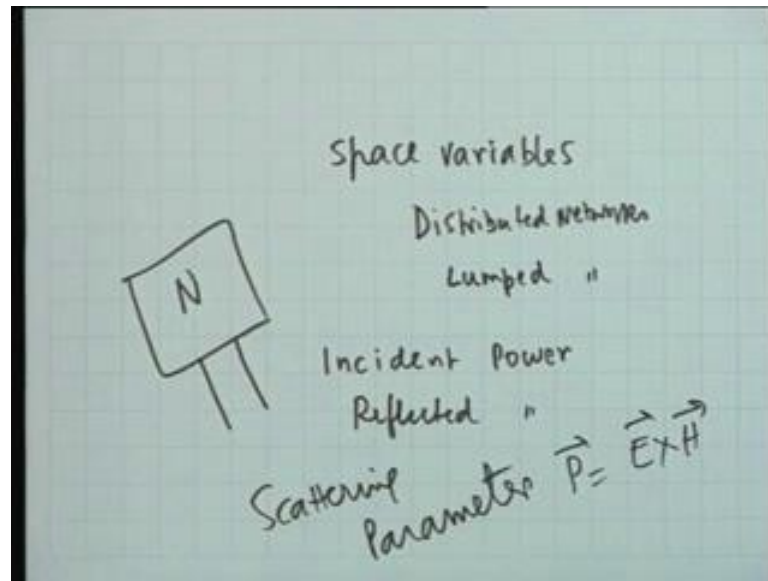 Space variables
Distributed Networks
Lumped "
N
Incident Power
Reflected "
Scattering
Parameter P⃗ = E⃗ × H⃗